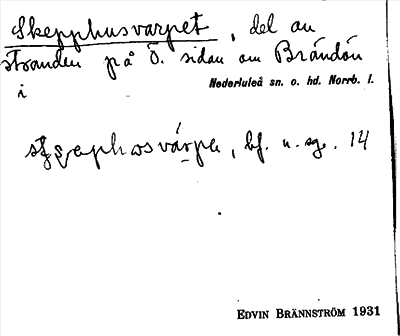 Skepphusvarpet, del av
stranden på Ö. sidan om Brändön
i Nederluleå sn. o. hd. Norrb. l.
bf. n. sg. 14
EDVIN BRÄNNSTRÖM 1931